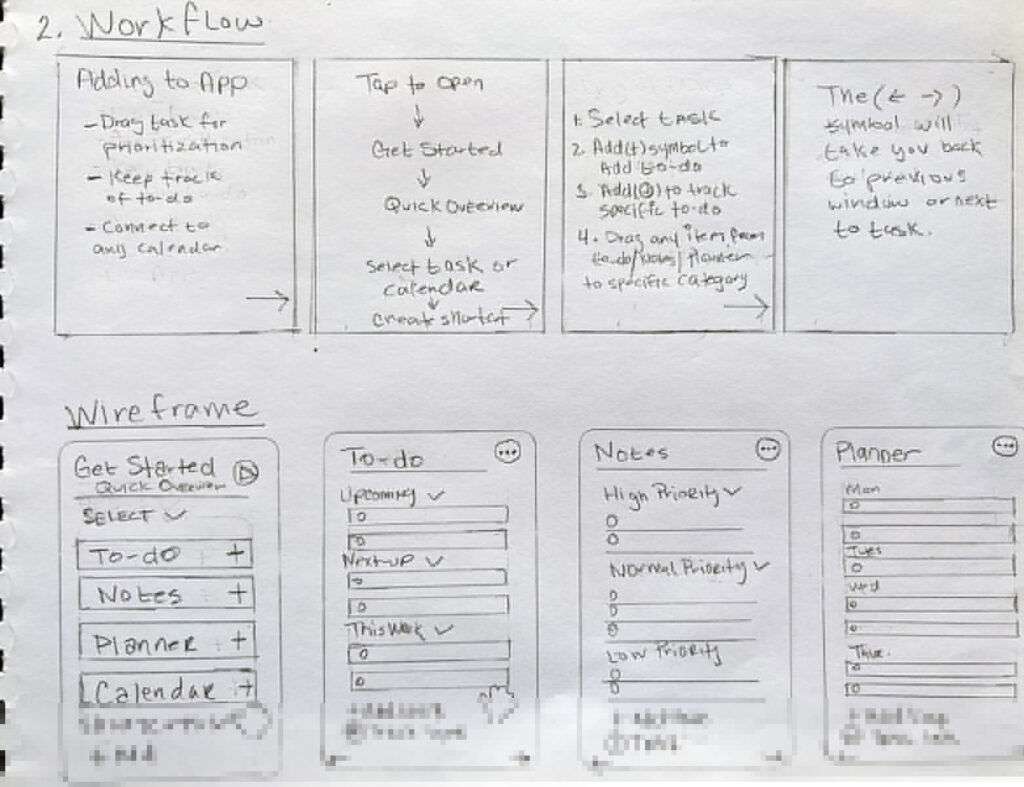 2. Workflow
Adding to App
- Drag task for
prioritization
- Keep track
of to-do
- Connect to
any calendar
Tap to open
Get Started
Quick Overview
Select task or
calendar
create shortcut
1. Select task
2. Add(+) symbol to
Add to-do
3. Add( ) to track
specific to-do
4. Drag any item from
to-do/Notes/Planner
to specific category
The (← →)
symbol will
take you back
to previous
window or next
to task.
Wireframe
Get Started
Quick Overview
SELECT
To-do +
Notes +
Planner +
Calendar +
+ Add
To-do
Upcoming
Next-up
This Week
Notes
High Priority
Normal Priority
Low Priority
Planner
Mon
Tues
Wed
Thur.